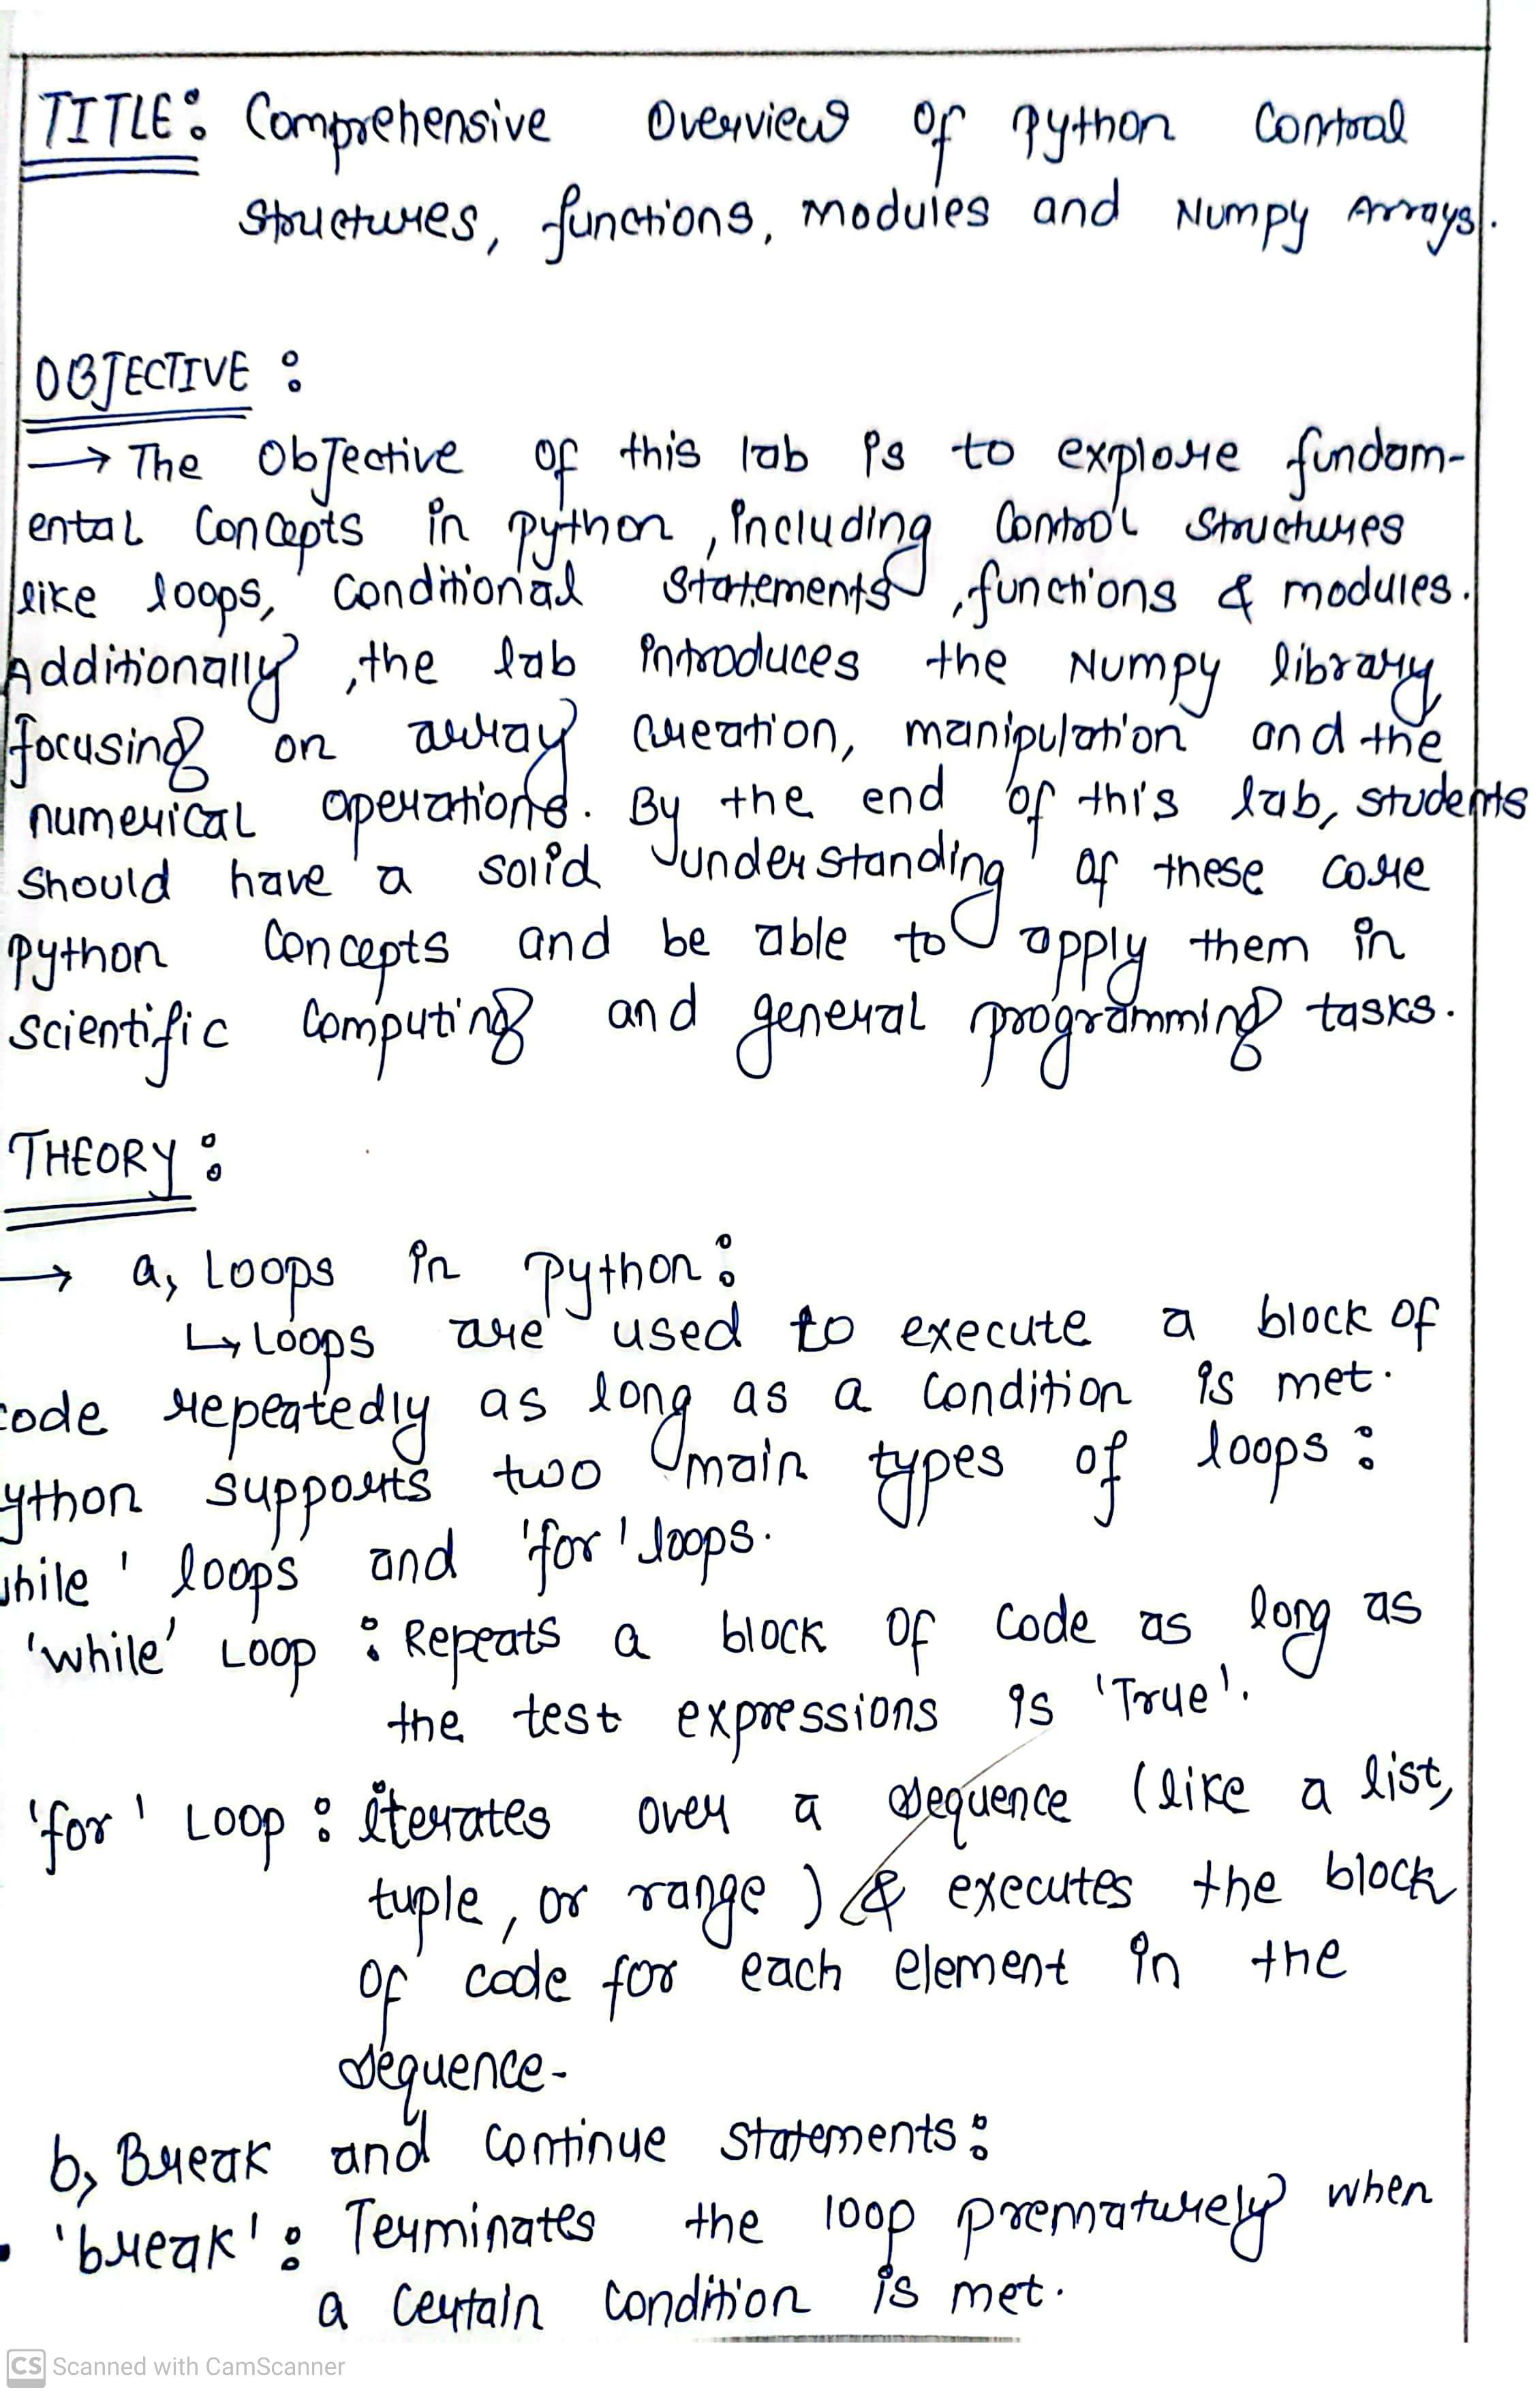 TITLE: Comprehensive Overview of Python Control
Structures, functions, modules and Numpy Arrays.
OBJECTIVE :
→ The Objective of this lab is to explore fundam-
ental Concepts in python, including Control Structures
like loops, Conditional Statements, functions & modules.
Additionally, the lab introduces the Numpy library
focusing on array creation, manipulation and the
numerical operations. By the end of this lab, students
should have a solid understanding of these core
python Concepts and be able to apply them in
scientific Computing and general programming tasks.
THEORY :
→ a, Loops in python :
↳ Loops are used to execute a block of
code repeatedly as long as a condition is met.
ython supports two main types of loops :
while' loops and 'for' loops.
'while' Loop : Repeats a block of code as long as
the test expressions is 'True'.
'for' Loop : iterates over a sequence (like a list,
tuple, or range) & executes the block
of code for each element in the
sequence-
b, Break and continue statements :
• 'break' : Terminates the loop prematurely when
a certain condition is met.
CS Scanned with CamScanner